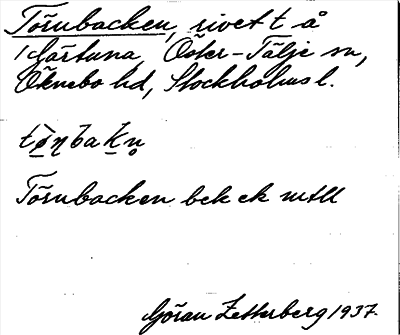 Törnbacken, rivet t å
Gärtuna, Öster-Tälje sn,
Öknebo hd, Stockholms l.
Törnbacken bek ek mtll
Göran Zetterberg 1937.